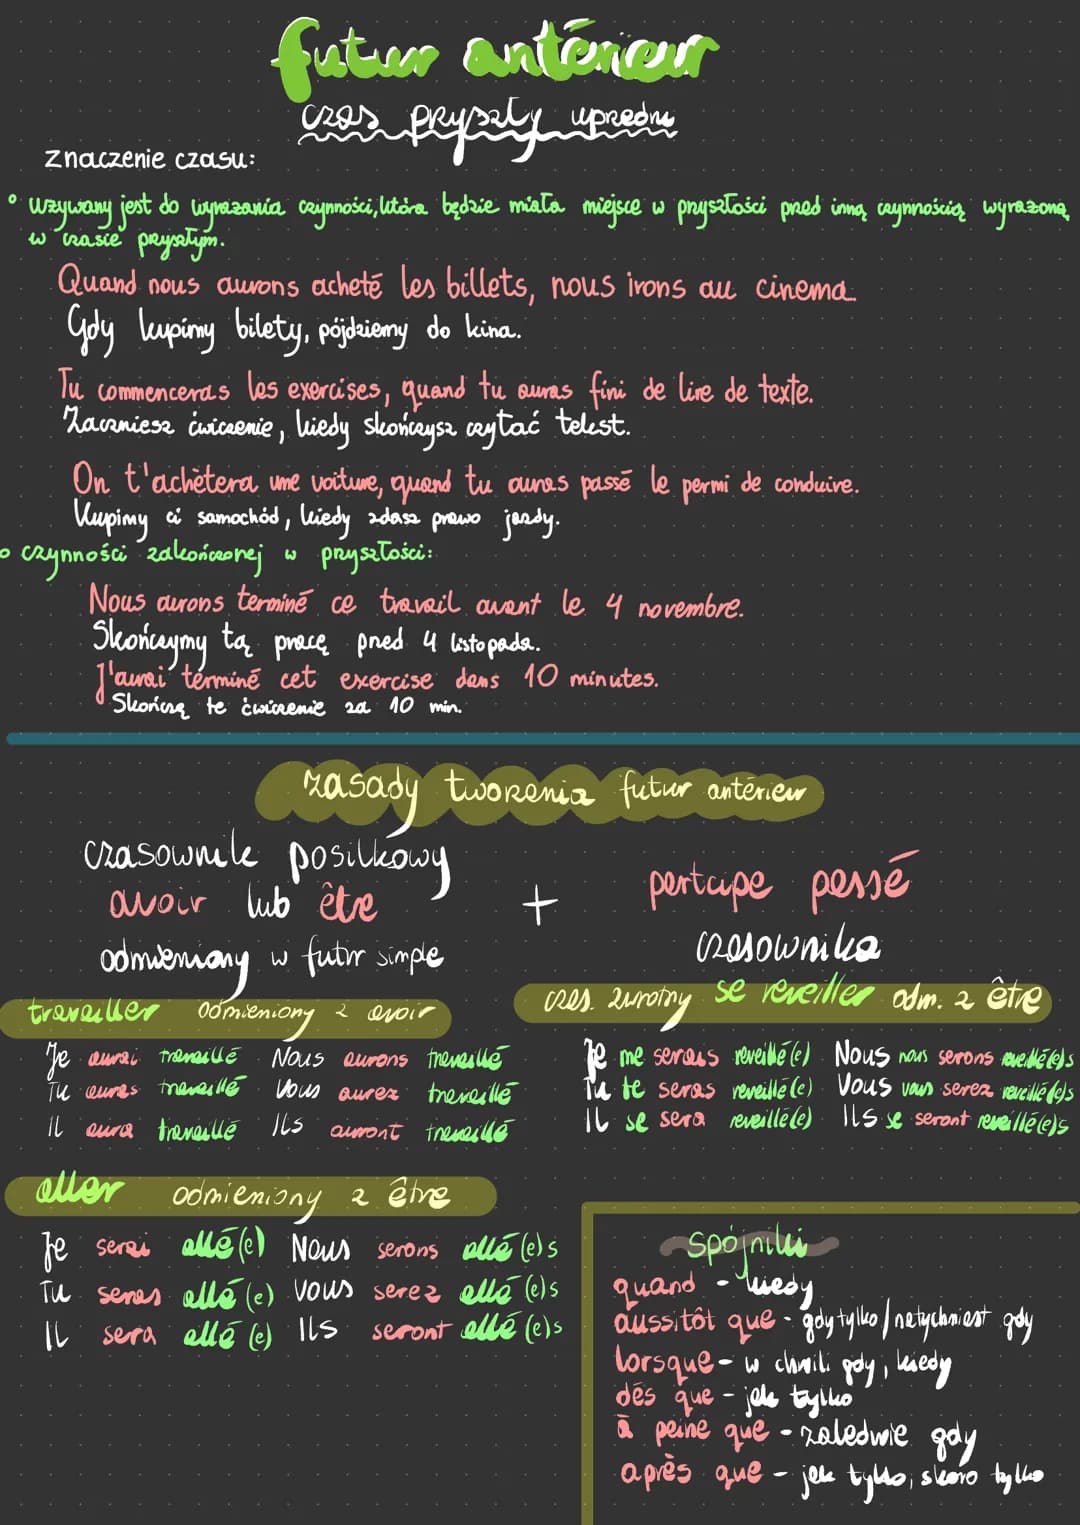 futur antérieur
czas pryszły uprzedni
znaczenie czasu:
• używany jest do wyrażania czynności, która będzie miała miejsce w przyszłości przed inną czynnością wyrażoną
w czasie przyszłym.
Quand nous aurons acheté les billets, nous irons au cinema.
Gdy kupimy bilety, pójdziemy do kina.
Tu commenceras les exercises, quand tu auras fini de lire de texte.
Zaczniesz ćwiczenie, kiedy skończysz czytać tekst.
On t'achètera une voiture, quand tu auras passé le permi de conduire.
Kupimy ci samochód, kiedy zdasz prawo jazdy.
• czynności zakończonej w przyszłości:
Nous aurons terminé ce travail avant le 4 novembre.
Skończymy tą pracę przed 4 listopada.
J'aurai terminé cet exercise dans 10 minutes.
Skończą te ćwiczenie za 10 min.
zasady tworzenia futur antérieur
czasownik posiłkowy + partcipe passé
avoir lub être czasownika
odmieniony w futur simple
travailler odmieniony z avoir
Je aurai travaillé Nous aurons travaillé
Tu auras travaillé Vous aurez travaillé
Il aura travaillé Ils auront travaillé
czas. zwrotny se reveiller odm. z être
Je me serais reveillé(e) Nous nous serons reveillé(e)s
Tu te seras reveillé(e) Vous vous serez reveillé(e)s
Il se sera reveillé(e) Ils se seront reveillé(e)s
aller odmieniony z être
Je serai allé(e) Nous serons allé(e)s
Tu seras allé(e) Vous serez allé(e)s
Il sera allé(e) Ils seront allé(e)s
Spójniki
quand - kiedy
aussitôt que - gdy tylko / natychmiast gdy
lorsque - w chwili gdy, kiedy
dés que - jak tylko
à peine que - zaledwie gdy
après que - jak tylko, skoro tylko